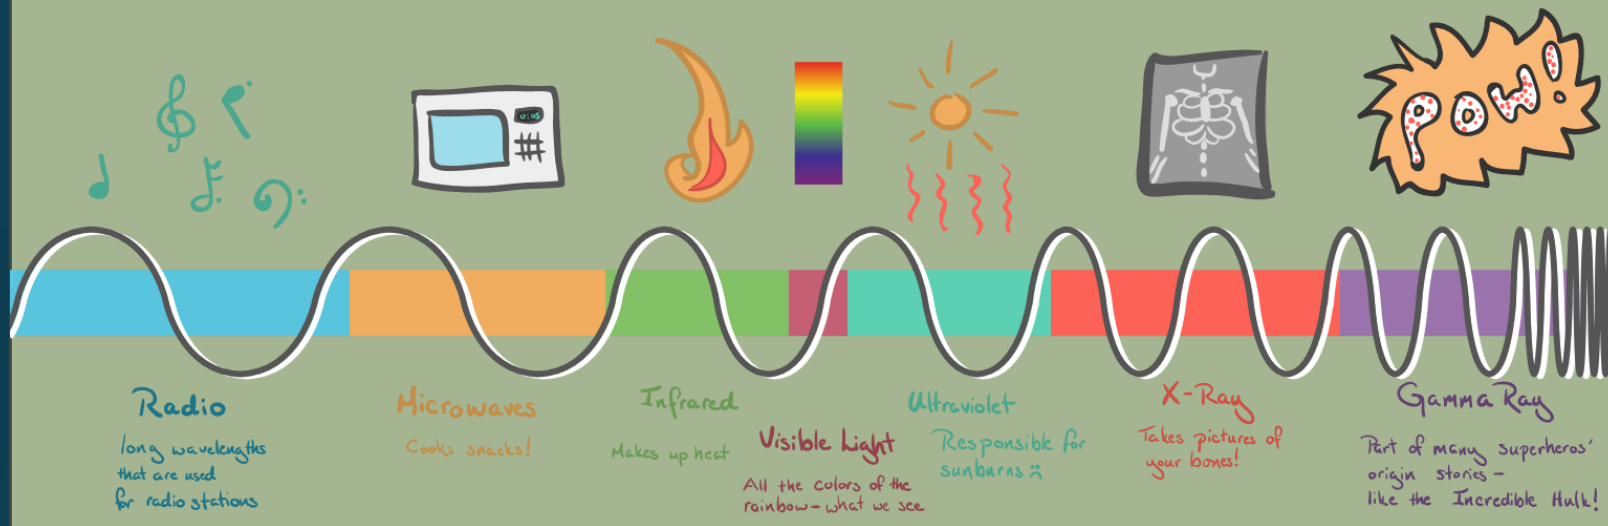 POW!
0:05
Radio
long wavelengths
that are used
for radio stations
Microwaves
Cooks snacks!
Infrared
Makes up heat
Visible Light
All the colors of the
rainbow - what we see
Ultraviolet
Responsible for
sunburns :(
X-Ray
Takes pictures of
your bones!
Gamma Ray
Part of many superheros'
origin stories -
like the Incredible Hulk!